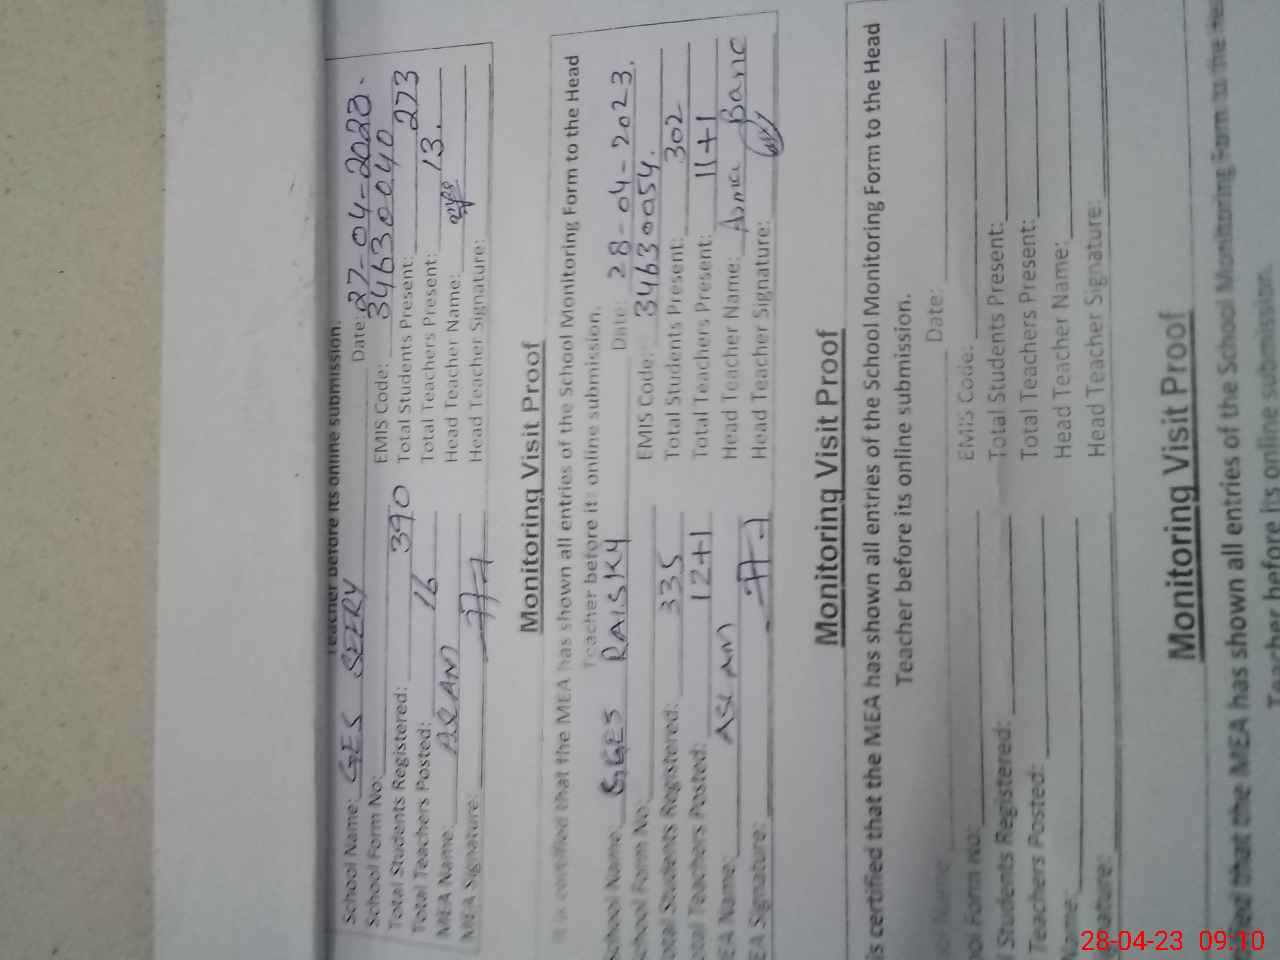 Teacher before its online submission.
School Name: GES SEERY Date: 27-04-2023.
School Form No: EMIS Code: 34630040
Total Students Registered: 390 Total Students Present: 273
Total Teachers Posted: 16 Total Teachers Present: 13.
MEA Name: Head Teacher Name:
MEA Signature: Head Teacher Signature:
Monitoring Visit Proof
It is certified that the MEA has shown all entries of the School Monitoring Form to the Head
Teacher before its online submission.
School Name: GGES RAISKY Date: 28-04-2023.
School Form No: EMIS Code: 34630054.
otal Students Registered: 335 Total Students Present: 302
otal Teachers Posted: 12+1 Total Teachers Present: 11+1
EA Name: ASLAM Head Teacher Name: Asma Bano
EA Signature: Head Teacher Signature:
Monitoring Visit Proof
is certified that the MEA has shown all entries of the School Monitoring Form to the Head
Teacher before its online submission.
ool Name: Date:
ool Form No: EMIS Code:
l Students Registered: Total Students Present:
Teachers Posted: Total Teachers Present:
Name: Head Teacher Name:
gnature: Head Teacher Signature:
Monitoring Visit Proof
ified that the MEA has shown all entries of the School Monitoring Form to the
Teacher before its online submission.
28-04-23 09:10